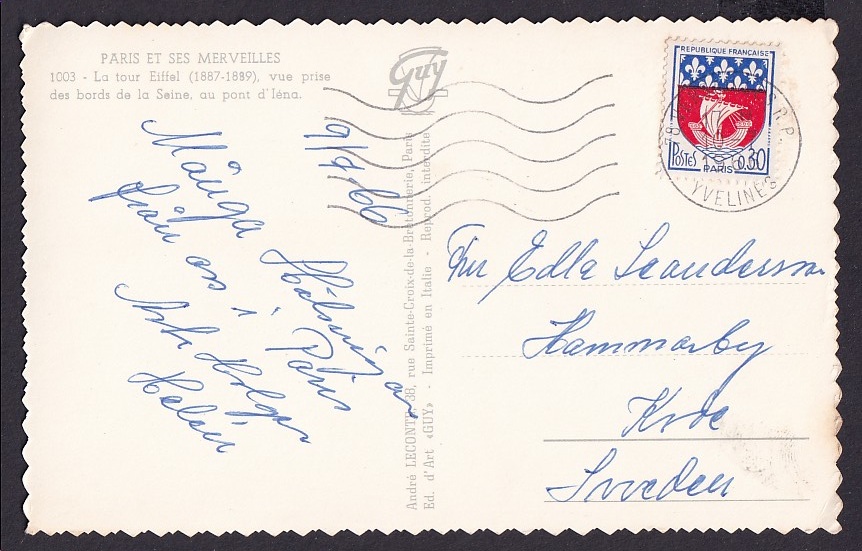 PARIS ET SES MERVEILLES
1003 - La tour Eiffel (1887-1889), vue prise
des bords de la Seine, au pont d'Iéna.
Guy
9/7-66
Många Hälsningar
från oss i Paris
Holger
Helén
André LECONTE, 38, rue Sainte-Croix-de-la-Bretonnerie, Paris
Ed. d'Art «GUY» - Imprimé en Italie - Reprod. interdite
REPUBLIQUE FRANÇAISE
POSTES 0.30
PARIS
78
R.P.
YVELINES
Fru Edla
Hammarby
Sweden